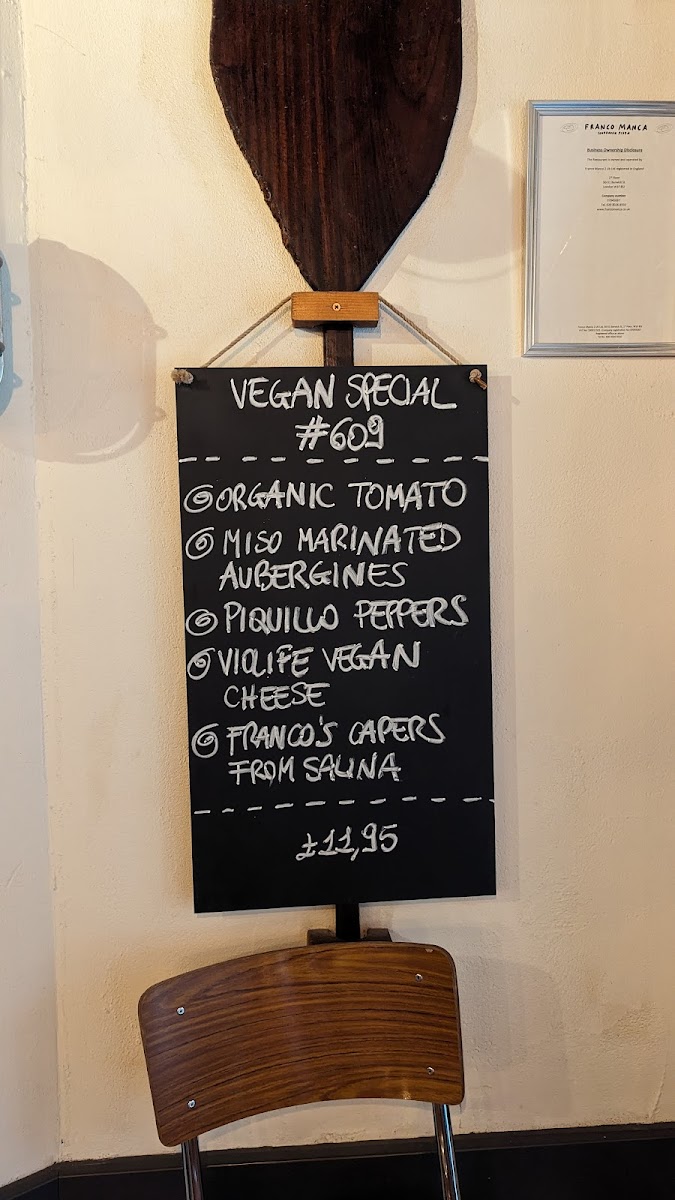 VEGAN SPECIAL
#609
ORGANIC TOMATO
MISO MARINATED
AUBERGINES
PIQUILLO PEPPERS
VIOLIFE VEGAN
CHEESE
FRANCO'S CAPERS
FROM SALINA
£11,95
FRANCO MANCA
SOURDOUGH PIZZA
Business Ownership Disclosure